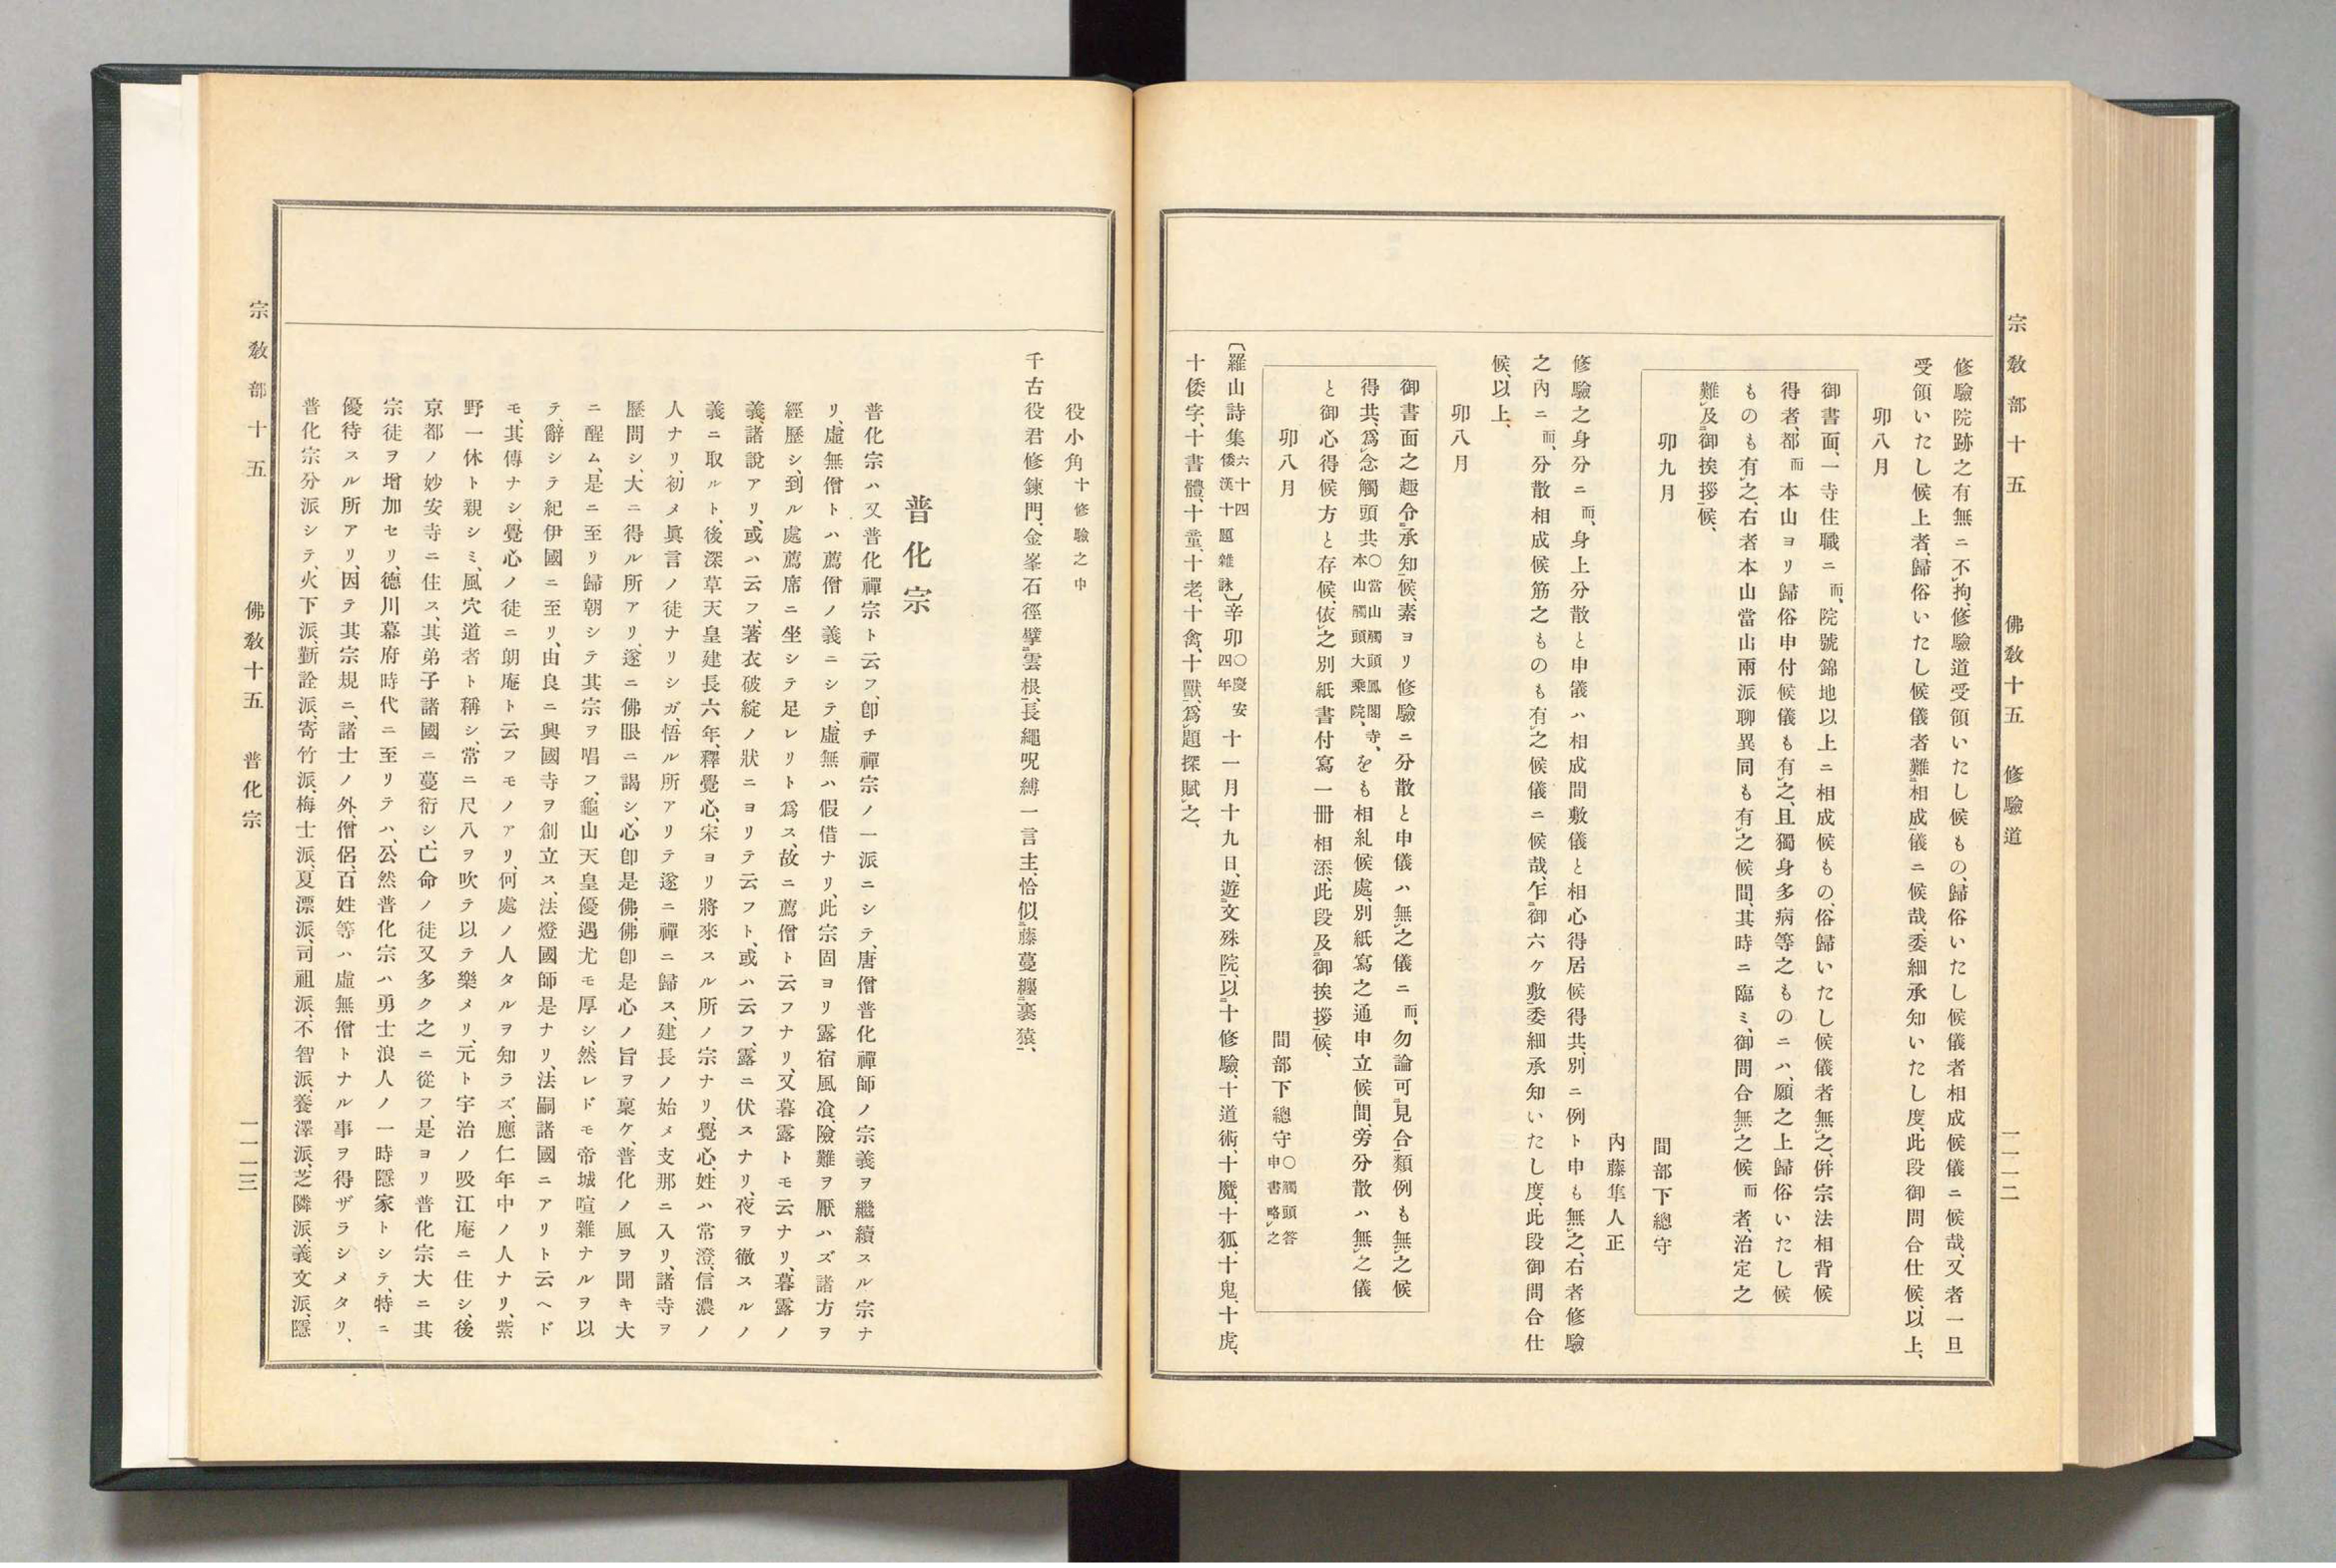 宗敎部十五　佛敎十五　修驗道　一一一二
修驗院跡之有無ニ不㆑拘、修驗道受領いたし候もの、歸俗いたし候儀者相成候儀ニ候哉、又者一旦
受領いたし候上者、歸俗いたし候儀者難㆓相成㆒儀ニ候哉、委細承知いたし度、此段御問合仕候、以上、
卯八月
御書面、一寺住職ニ而、院號錦地以上ニ相成候もの、俗歸いたし候儀者無㆑之、併宗法相背候
得者、都而本山ヨリ歸俗申付候儀も有㆑之、且獨身多病等之ものニハ、願之上歸俗いたし候
ものも有㆑之、右者本山當山兩派聊異同も有㆑之候間、其時ニ臨ミ、御問合無㆑之候而者、治定之
難㆑及㆓御挨拶㆒候、
卯九月　間部下總守
內藤隼人正
修驗之身分ニ而、身上分散と申儀ハ相成間敷儀と相心得居候得共、別ニ例ト申も無㆑之、右者修驗
之內ニ而、分散相成候筋之ものも有㆑之候儀ニ候哉、乍㆓御六ケ敷㆒委細承知いたし度、此段御問合仕
候、以上、
卯八月
御書面之趣令㆓承知㆒候、素ヨリ修驗ニ分散と申儀ハ無㆑之儀ニ而、勿論可㆓見合㆒類例も無㆑之候
得共、爲㆑念觸頭共〇當山觸頭鳳閣寺、本山觸頭大乘院、をも相糺候處、別紙寫之通申立候間、旁分散ハ無㆑之儀
と御心得候方と存候、依㆑之別紙書付寫一冊相添、此段及㆓御挨拶㆒候、
卯八月　間部下總守〇觸頭答申書略㆑之
〔羅山詩集六十四倭漢十題雜詠〕辛卯〇慶安四年十一月十九日、遊㆓文殊院㆒、以㆓十修驗、十道術、十魔、十狐、十鬼、十虎、
十倭字、十書體、十童、十老、十禽、十獸㆒、爲㆑題探賦㆑之、
役小角十修驗之中
千古役君修鍊門、金峯石徑擘㆓雲根㆒、長繩呪縛一言主、恰似㆓藤蔓纏㆒㆑裹猿㆒、
普化宗
普化宗ハ又普化禪宗ト云フ、卽チ禪宗ノ一派ニシテ、唐僧普化禪師ノ宗義ヲ繼續スル宗ナ
リ、虛無僧トハ薦僧ノ義ニシテ、虛無ハ假借ナリ、此宗固ヨリ露宿風飡、險難ヲ厭ハズ諸方ヲ
經歷シ、到ル處薦席ニ坐シテ足レリト爲ス、故ニ薦僧ト云フナリ、又暮露トモ云ナリ、暮露ノ
義、諸說アリ、或ハ云フ、著衣破綻ノ狀ニヨリテ云フト、或ハ云フ、露ニ伏スナリ、夜ヲ徹スルノ
義ニ取ルト、後深草天皇建長六年、釋覺心、宋ヨリ將來スル所ノ宗ナリ、覺心、姓ハ常澄、信濃ノ
人ナリ、初メ眞言ノ徒ナリシガ、悟ル所アリテ遂ニ禪ニ歸ス、建長ノ始メ支那ニ入リ、諸寺ヲ
歷問シ、大ニ得ル所アリ、遂ニ佛眼ニ謁シ、心卽是佛、佛卽是心ノ旨ヲ稟ケ、普化ノ風ヲ聞キ大
ニ醒ム、是ニ至リ歸朝シテ其宗ヲ唱フ、龜山天皇優遇尤モ厚シ、然レドモ帝城喧雜ナルヲ以
テ、辭シテ紀伊國ニ至リ、由良ニ興國寺ヲ創立ス、法燈國師是ナリ、法嗣諸國ニアリト云ヘド
モ、其傳ナシ、覺心ノ徒ニ朗庵ト云フモノアリ、何處ノ人タルヲ知ラズ、應仁年中ノ人ナリ、紫
野一休ト親シミ、風穴道者ト稱シ、常ニ尺八ヲ吹テ以テ樂メリ、元ト宇治ノ吸江庵ニ住シ、後
京都ノ妙安寺ニ住ス、其弟子諸國ニ蔓衍シ、亡命ノ徒又多ク之ニ從フ、是ヨリ普化宗大ニ其
宗徒ヲ增加セリ、德川幕府時代ニ至リテハ、公然普化宗ハ勇士浪人ノ一時隱家トシテ、特ニ
優待スル所アリ、因テ其宗規ニ、諸士ノ外、僧侶、百姓等ハ虛無僧トナル事ヲ得ザラシメタリ、
普化宗分派シテ、火下派、靳詮派、寄竹派、梅士派、夏漂派、司祖派、不智派、養澤派、芝隣派、義文派、隱
宗敎部十五　佛敎十五　普化宗　一一一三